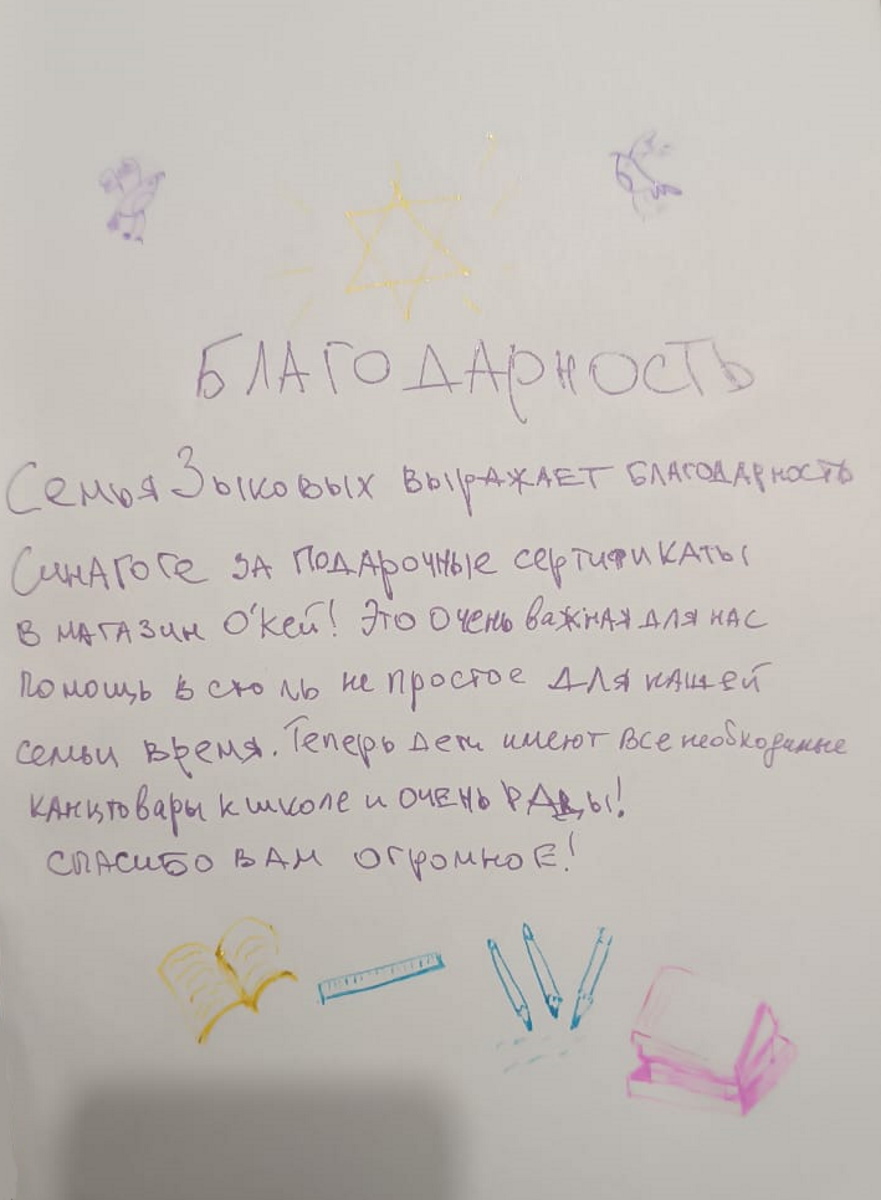 БЛАГОДАРНОСТЬ
Семья Зыковых выражает благодарность
Синагоге за подарочные сертификаты
в магазин О'кей! Это очень важная для нас
помощь в столь не простое для нашей
семьи время. Теперь дети имеют все необходимые
канцтовары к школе и очень рады!
спасибо вам огромное!